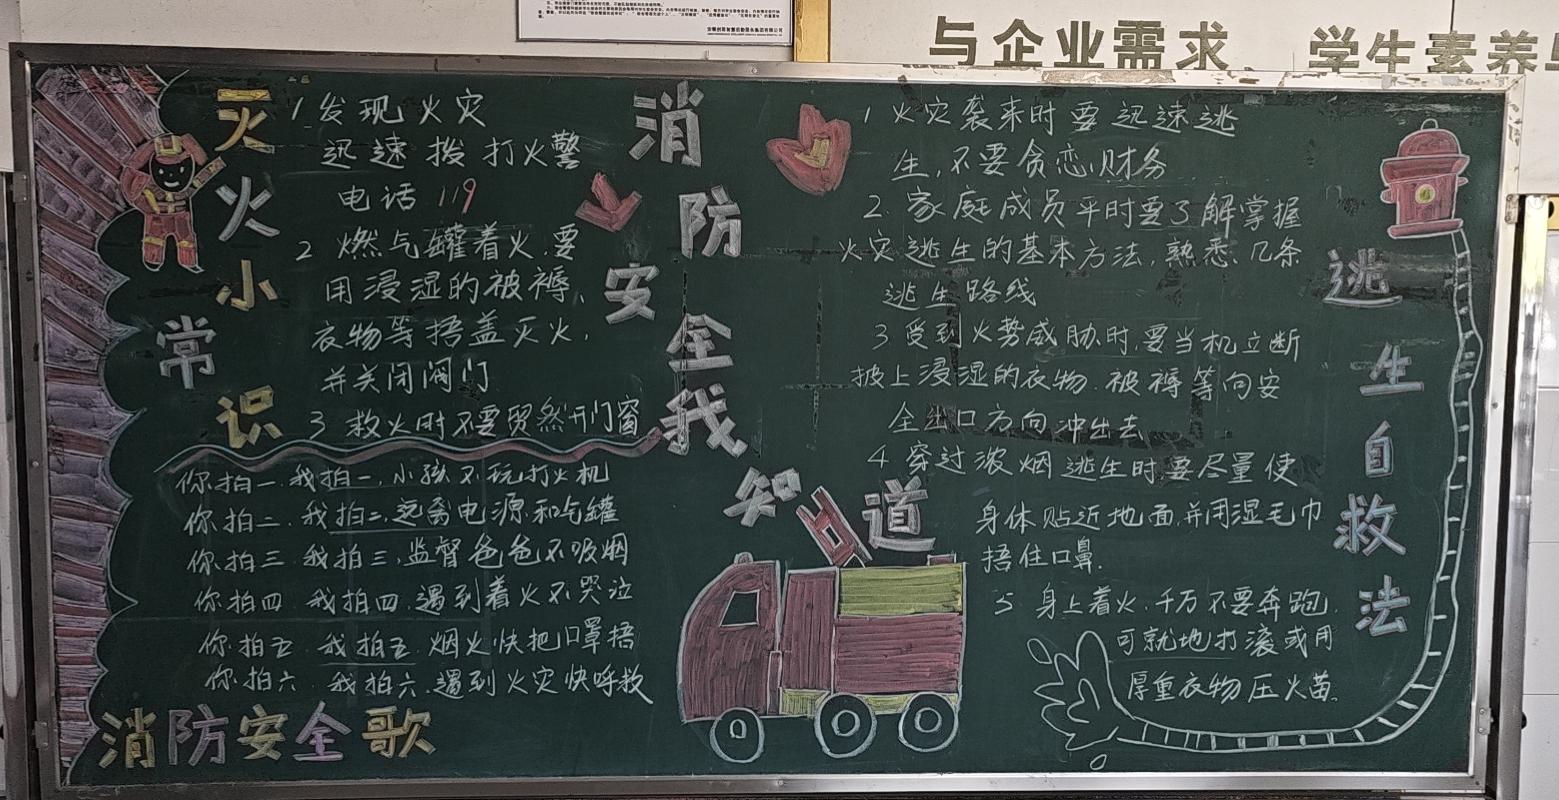 与企业需求 学生素养与
消防安全我知道
灭火小常识
1 发现火灾
迅速拨打火警
电话 119
2 燃气罐着火,要
用浸湿的被褥、
衣物等捂盖灭火,
并关闭阀门
3 救火时不要贸然开门窗
你拍一.我拍一,小孩不玩打火机
你拍二.我拍二,远离电源和气罐
你拍三.我拍三,监督爸爸不吸烟
你拍四.我拍四.遇到着火不哭泣
你拍五 我拍五 烟火快把口罩捂
你拍六 我拍六.遇到火灾快呼救
消防安全歌
1 火灾袭来时要迅速逃
生,不要贪恋财务
2.家庭成员平时要了解掌握
火灾逃生的基本方法,熟悉几条
逃生路线
3 受到火势威胁时,要当机立断
披上浸湿的衣物.被褥等向安
全出口方向冲出去
4 穿过浓烟逃生时要尽量使
身体贴近地面,并用湿毛巾
捂住口鼻.
5 身上着火.千万不要奔跑.
可就地打滚或用
厚重衣物压火苗.
逃生自救法